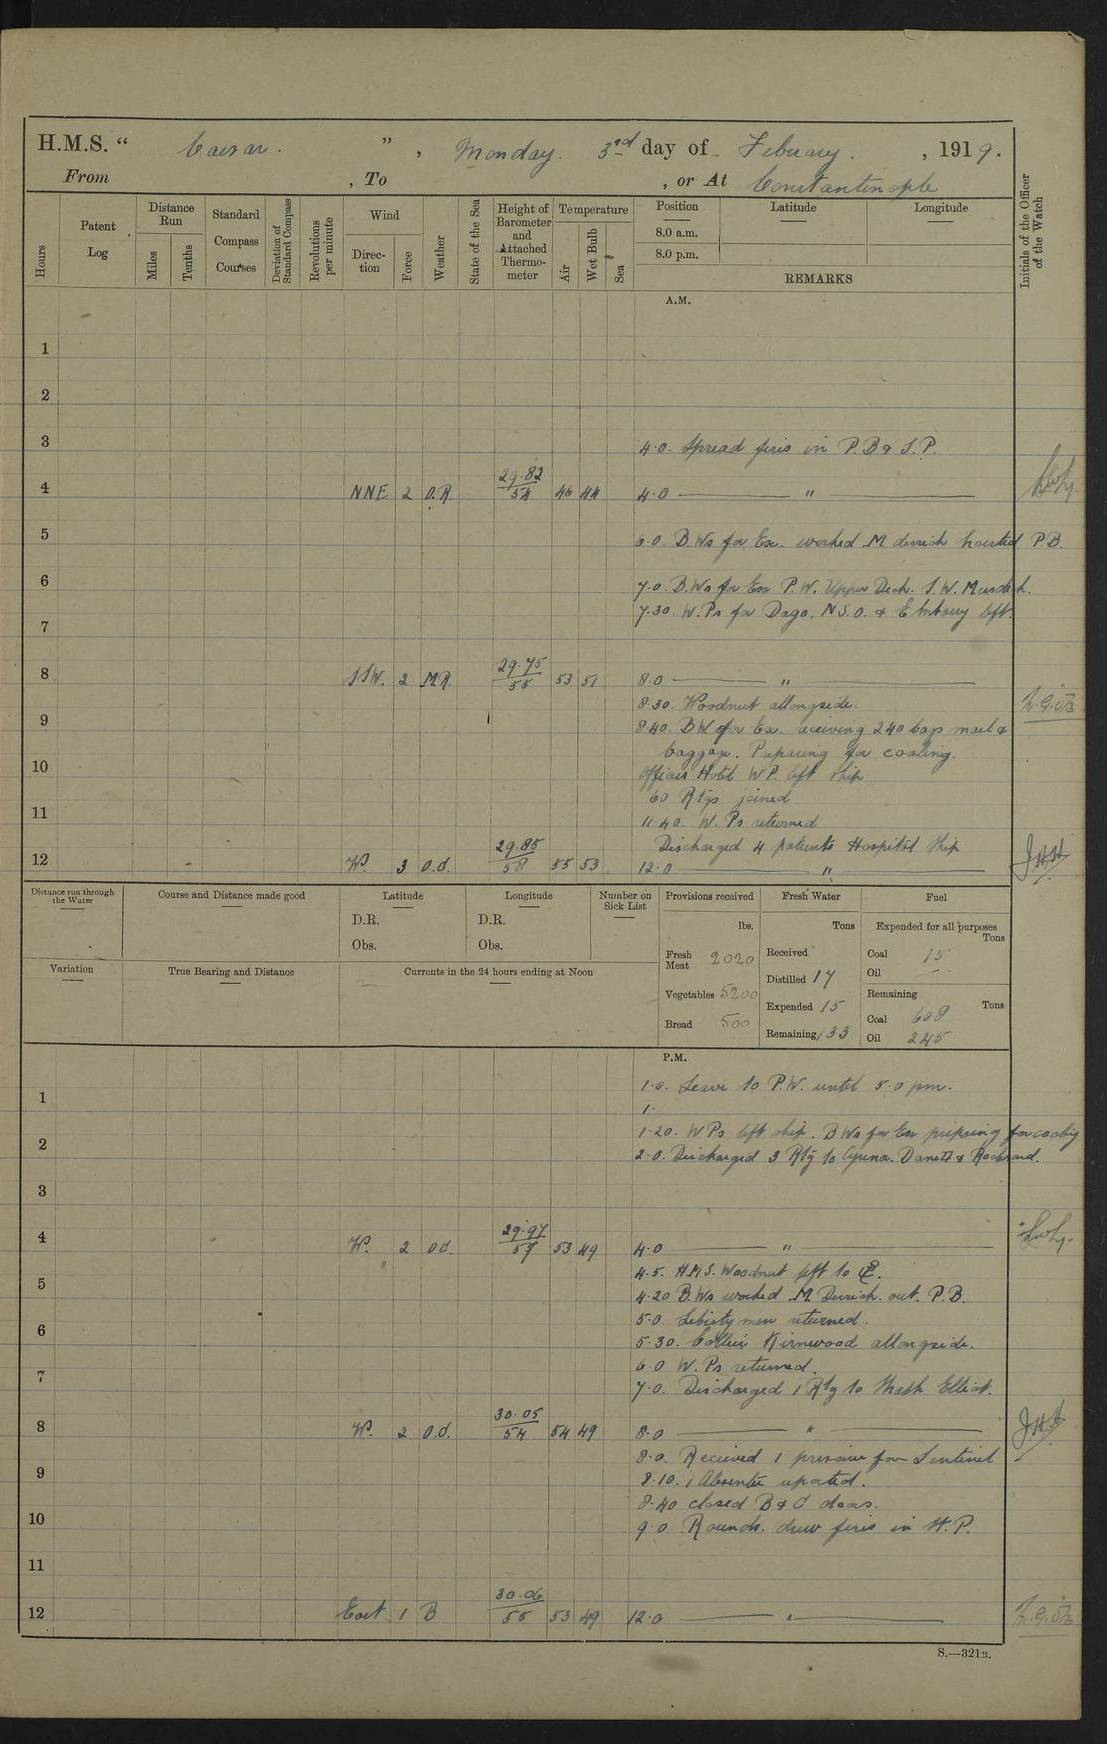 H.M.S. “ Caesar. ”, Monday. 3rd day of February. , 1919.
From , To , or At Constantinople
Hours
Patent Log
Distance Run
Miles
Tenths
Standard Compass Courses
Deviation of Standard Compass
Revolutions per minute
Wind
Direction
Force
Weather
State of the Sea
Height of Barometer and Attached Thermometer
Temperature
Air
Wet Bulb
Sea
Position
Latitude
Longitude
8.0 a.m.
8.0 p.m.
REMARKS
Initials of the Officer of the Watch
A.M.
1
2
3
4.0. Spread fires in P.B & S.P.
4 NNE 2 O.R. 29.82 54 46 44 4.0 "
5
6.0. B.Ws for Ex. worked M derrick hoisted P.B.
6
7.0. B.Ws for Ex P.W. Upper Deck. S.W. Messdeck.
7.30. W.Ps for Dago. N.S.O. & Embassy left.
7
8 SSW. 2 M.R. 29.75 55 53 51 8.0 "
8.30. Woodnut allongside.
9
8.40. BW for Ex. receiving 240 bags mail &
baggage. Preparing for coaling.
10
Officers Hotel W.P. left ship
60 Rtgs joined
11
11.40. W. Ps returned
Discharged 4 patients Hospital Ship
12 W. 3 O.d. 29.85 58 55 53 12.0 " JHH
Distance run through the Water
Course and Distance made good
Latitude
D.R.
Obs.
Longitude
D.R.
Obs.
Number on Sick List
Provisions received
lbs.
Fresh Meat 2020
Vegetables 5200
Bread 500
Fresh Water
Tons
Received
Distilled 17
Expended 15
Remaining 133
Fuel
Expended for all purposes
Tons
Coal 15
Oil —
Remaining
Tons
Coal 608
Oil 245
Variation
True Bearing and Distance
Currents in the 24 hours ending at Noon
P.M.
1.0. Leave to P.W. until 5.0 pm.
1
1.
1.20. WPs left ship. BWs for Ex preparing for coaling
2
2.0. Discharged 3 Rtg to
3
4 W. 2 od. 29.97 57 53 49 4.0 "
4.5. H.M.S. Woodnut left to
5
4.20 B.Ws worked M Derrick. out. P.B.
5.0. Liberty men returned.
6
5.30. Collier Kirnwood allongside.
6.0 W. Ps returned.
7
7.0. Discharged 1 Rtg to Elliot.
8 W. 2 O.d. 30.05 54 54 49 8.0 " JHH
8.0. Received 1 prisoner from Sentinel
9
8.10. 1 Absentee reported.
8.40 closed B & C doors.
10
9.0 Rounds. drew fires in H.P.
11
12 East 1 B 30.06 55 53 49 12.0 "
S.—321B.